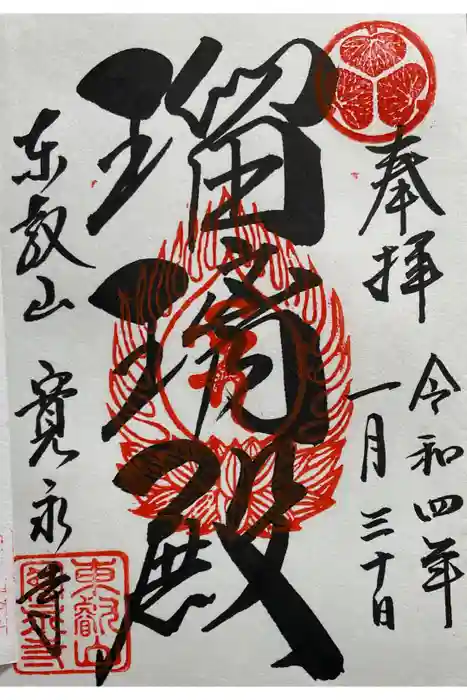 奉拝
令和四年
一月三十日
瑠璃殿
东叡山 寛永寺
東叡山
寛永寺